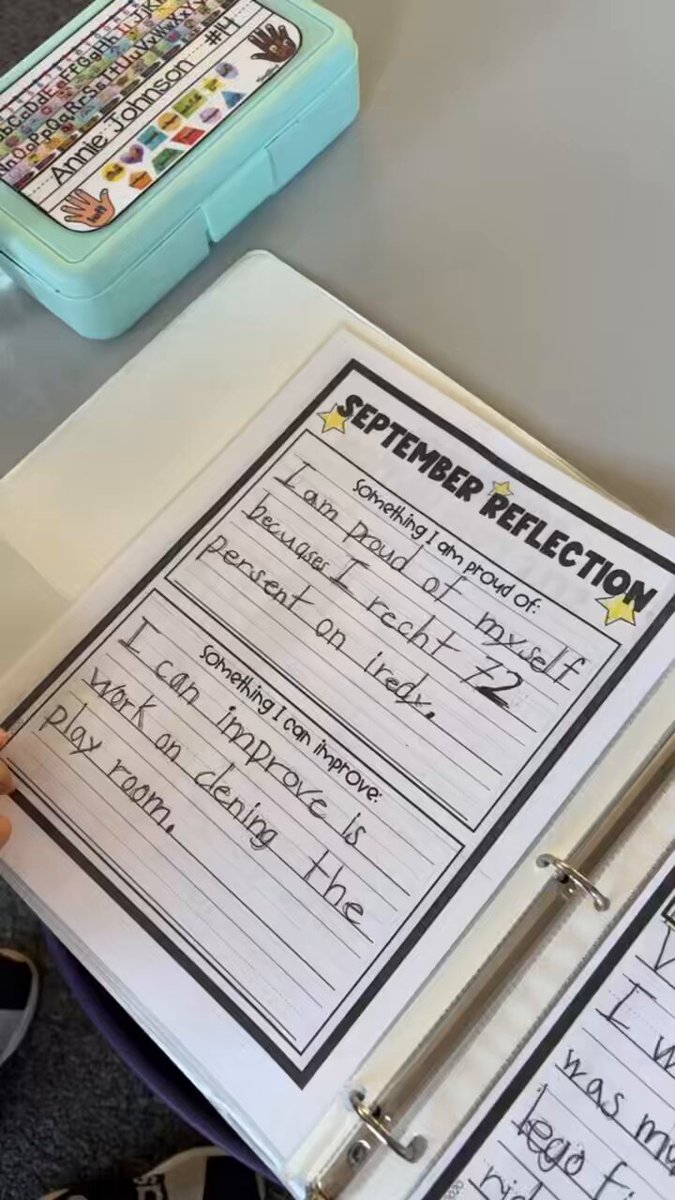 Annie Johnson #14
left
SEPTEMBER REFLECTION
Something I am proud of:
I am proud of myself
becuases I recht 72
persent on iredy.
Something I can improve:
I can improve is
work on clening the
play room.
I w
was my
lego f